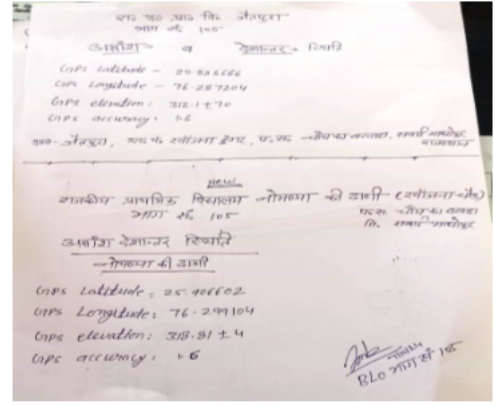 रा० प्रा० वि० जैतपुरा
भाग सं० 105
अक्षांश व देशान्तर स्थिति
GPS Latitude - 25.886666
GPS Longitude - 76.287204
GPS elevation: 312.1±70
GPS accuracy: 1.6
ग्राम-जैतपुरा, खिजना डूंगर, प.स. चौथ का बरवाडा, सवाई माधोपुर
राजस्थान
New
राजकीय प्राथमिक विद्यालय की ढाणी
भाग सं० 105
प.स. चौथ का बरवाडा
जि. सवाई माधोपुर
अक्षांश देशान्तर स्थिति
की ढाणी
GPS Latitude: 25.906602
GPS Longitude: 76.299104
GPS elevation: 318.81 ± 4
GPS accuracy: 1.6
BLO भाग सं 105